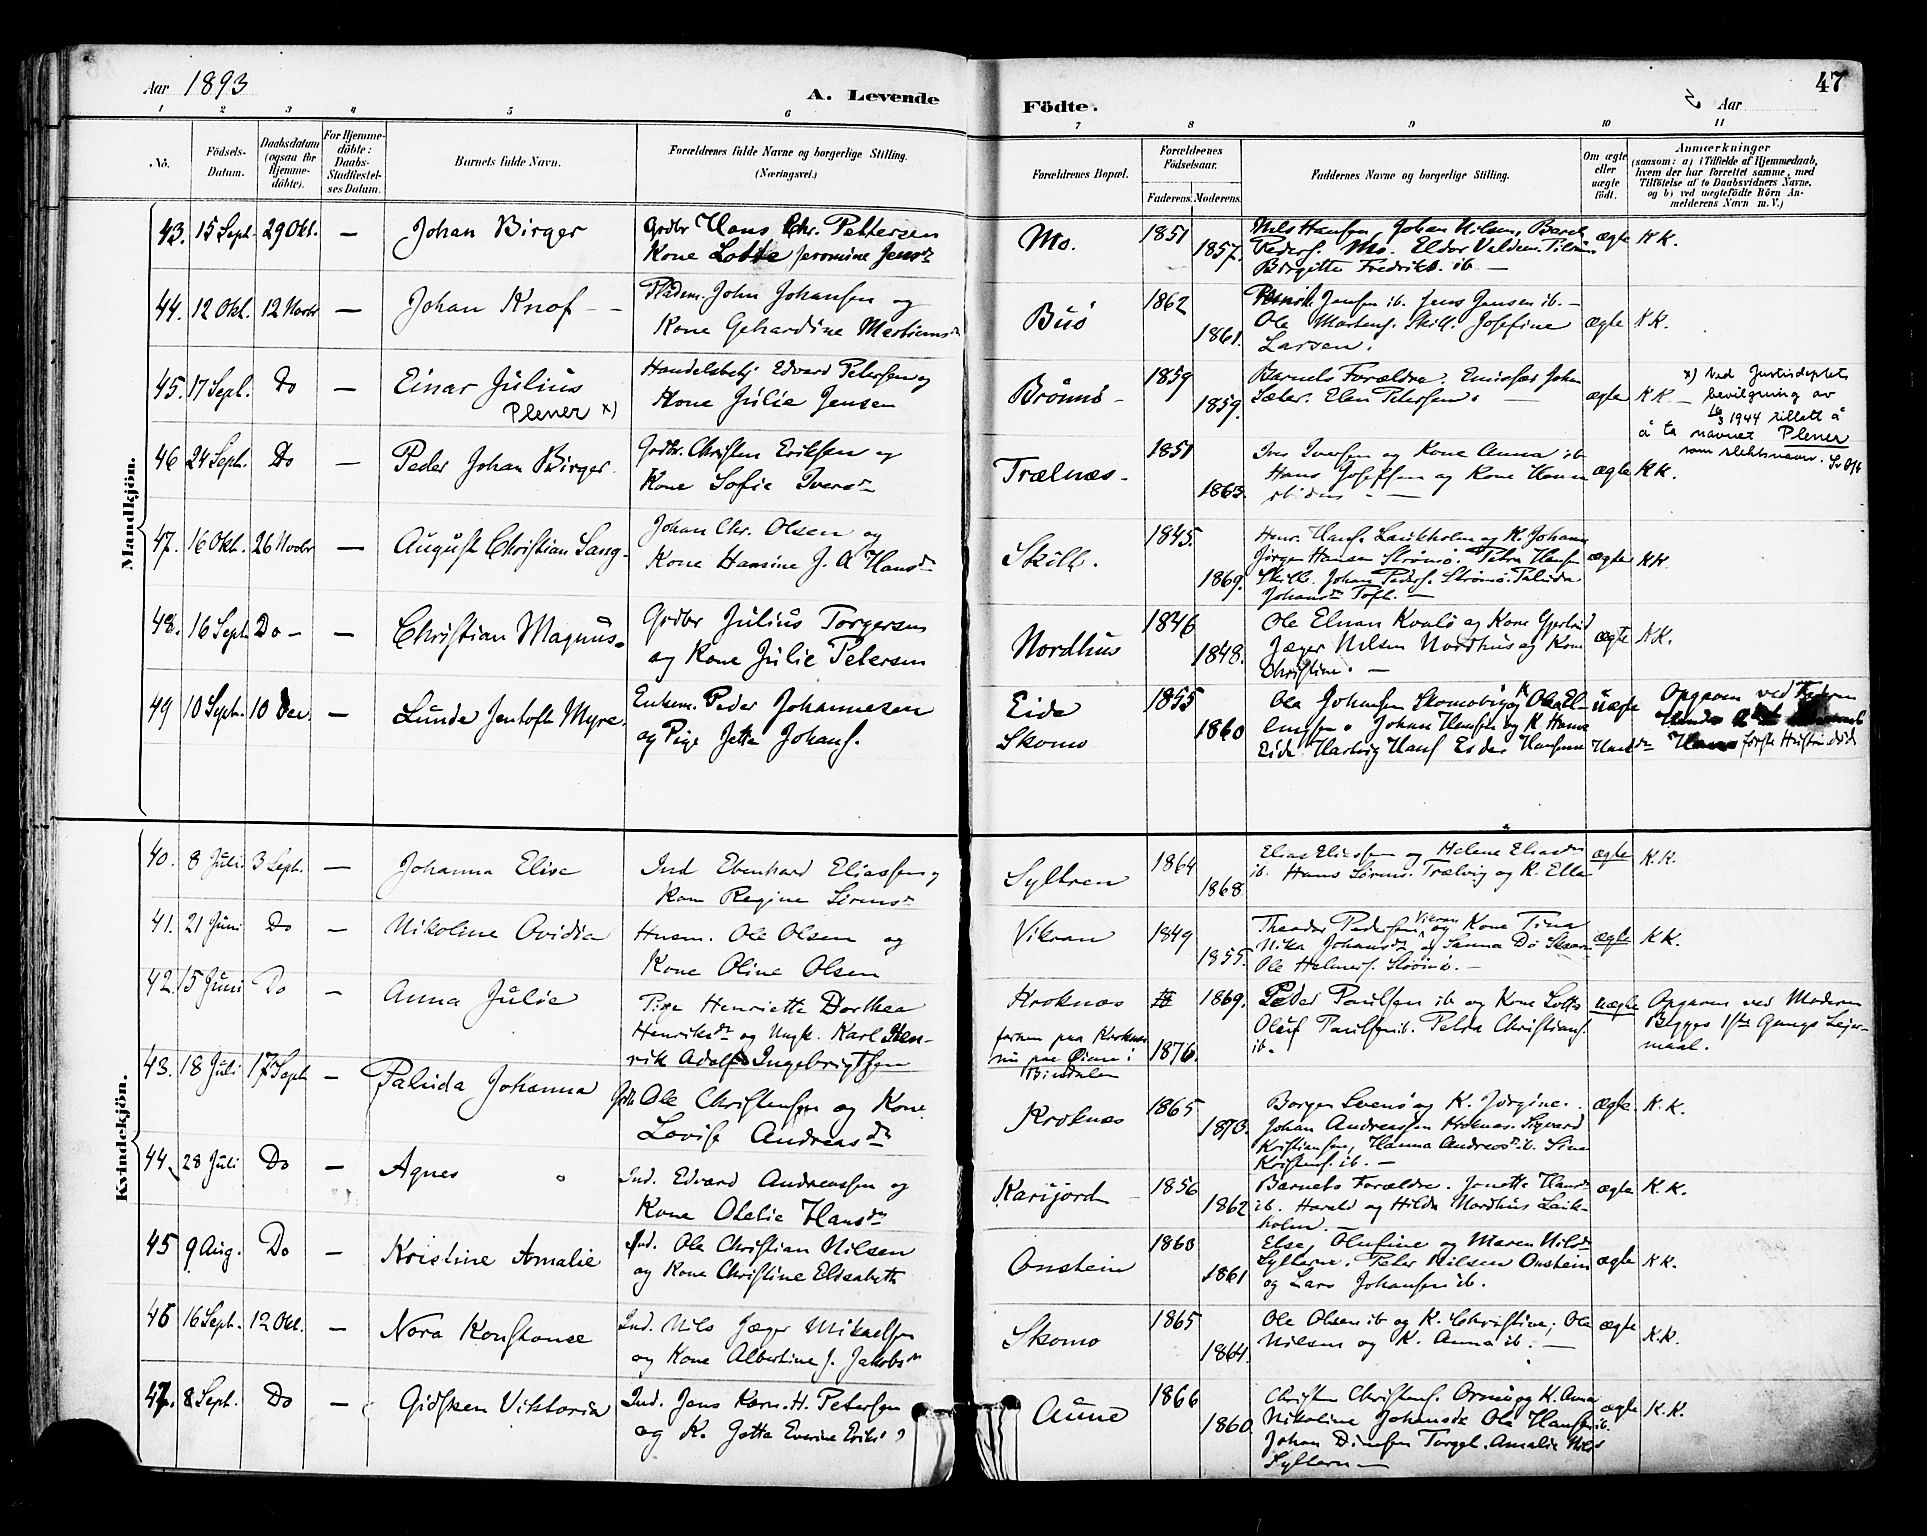 Aar 1893
A. Levende
Födte.
Aar
47
1 2 3 4 5 6 7 8 9 10 11
No.
Födsels-Datum.
Daabsdatum (ogsaa for Hjemme-döbte).
For Hjemme-döbte: Daabs-Stadfestel-ses Datum.
Barnets fulde Navn.
Forældrenes fulde Navne og borgerlige Stilling. (Næringsvei.)
Forældrenes Bopæl.
Forældrenes Födselsaar.
Faderens. Moderens.
Faddernes Navne og borgerlige Stilling.
Om ægte eller uægte födt.
Anmærkninger
(saasom: a) i Tilfælde af Hjemmedaab, hvem der har forrettet samme, med Tilföielse af to Daabsvidners Navne, og b) ved uægtefödte Börn An-melderens Navn m. V.)
Mandkjön.
43. 15 Sept. 29 Okt. — Johan Birger
Grdbr Hans Chr. Pettersen
Kone Lotte Jeromine Jensdr
Mo. 1851 1857.
Nils Hansen, Johan Nilsen,
Pedersf. Mo.
Birgitte Fredrikd. ib —
ægte K K.
44. 12 Okt. 12 Novbr — Johan Knof - -
John Johansen og
Kone Gehardine
Buö 1862 1861.
Jansen ib. Jens Jensen ib. —
Ole Martens. Skill. Josefine
Larsen.
ægte K K.
45. 17 Sept. Do — Einar Julius
Plener x)
Edvard Petersen og
Kone Julie Jensen
Brönnö - 1859 1859.
Barnets Forældre. Johan
Sæter. Elen Petersen.
ægte K K —
x) Ved Justisdeptets
bevilgning av
1944 tillatt å
å ta navnet Plener
som slektsnavn.
46 24 Sept. Do — Peder Johan Birger.
Grdbr. Christen Eriksen og
Kone Sofie Iversdr
Trælnæs. 1851 1863.
Iver Iversen og Kone Anna ib
Hans Josefsen og Kone
ægte K K.
47. 16 Okt. 26 Novbr — August Christian Sang.
Johan Chr. Olsen og
Kone Hansine J. A Hansdr
Skille. 1845. 1869.
Laukholm og K. Johanna
Jörgen Hansen Strömö. Petra Hansen
Skille. Johan Peders. Strömö. Palida
Johansdr Toft. —
ægte K K.
48. 16 Sept. Do - — Christian Magnus.
Grdbr Julius Torgersen
og Kone Julie Petersen
Nordhus 1846 1848.
Ole Elnan Kvalö og Kone Gjertrud
Jæger Nilsen Nordhus og Kone
Christine. —
ægte K K.
49 10 Sept. 10 Dec. — Lunde Jentoft Myre.
Enkem. Peder Johannesen
og Pige Jette Johans.
Eide
Skomo
1855 1860
Ole Johansen Skomo
Johan Hansen og K. Hanna
Eide. Hartvig Hans
uægte
Opgaven ved Faderen
förste Hustru död
Kvindekjön.
40. 8 Juli. 3 Sept. — Johanna Elise
Ind Ebenhard Eliassen og
Kone Regine Sörensdr
Syltern 1864 1868
Elias Eliassen og Helene Eliasdr
ib. Hans Sörens. Trælvig og K. Ella
ægte K. K.
41. 21 Juni Do — Nikoline Ovidia
Husm. Ole Olsen og
Kone Oline Olsen
Vikran 1849 1855.
Theodor Pedersen Vikran og Kone Tina
Johansdr og Sanna Do
Ole Helmers. Strömö. —
ægte K K.
42. 15 Juni Do — Anna Julie
Pige Henriette Dorthea
Henriksdr og Ungk. Karl Hen-
rik Adolf Ingebrigtsen
Kroknæs
nu paa
Bindalen
1869. 1876.
Peder Paulsen ib og Kone Lotte
Oluf Paulsen ib. Petra Christians.
ib.
uægte
Opgaven ved Moderen
Begges 1ste Gangs Leier-
maal.
43. 18 Juli 17 Sept — Palida Johanna
Gdbr Ole Christensen og Kone
Lovise Andreasdr
Kroknæs 1865 1873.
Borger Svensö og K. Jörgine.
Johan Andreassen Kroknæs. Sigvard
Kristiansen, Hanna Andreasdr ib. Sina
Kristens. ib. —
ægte. K. K.
44. 28 Juli Do — Agnes
Ind. Edvard Andreassen og
Kone Otelie Hansdr
Karijord 1856 1862
Barnets Forældre. Jonette Hansdr
ib. Harald og Hilda Nordhus Lauk-
holm. —
ægte K. K.
45 9 Aug. Do — Kristine Amalie
Ind. Ole Christian Nilsen
og Kone Christine Elisabeth
Onstein 1863 1861
Else, Olufine og Maren Nilsdr
Syltern. Peter Nilsen Onstein
og Lars Johansen ib.
ægte K K.
46 16 Sept. 12 Okt. — Nora Konstanse
Ind. Nils Jæger Mikaelsen
og Kone Albertine J. Jakobsdr
Skomo 1865 1864.
Ole Olsen ib og K. Christine, Ole
Nilsen og K. Anna ib. —
ægte K.K.
47. 8 Sept. Do — Gidsken Viktoria
Ind. Jens Korn. H. Petersen
og K. Jette Everine
Aune 1866 1860.
Christen Christens. Ormö og K. Anna
Nikoline Johansdr Ole Hansen ib.
Johan Torget. Amalie Nils
Syltern —
ægte K. K.